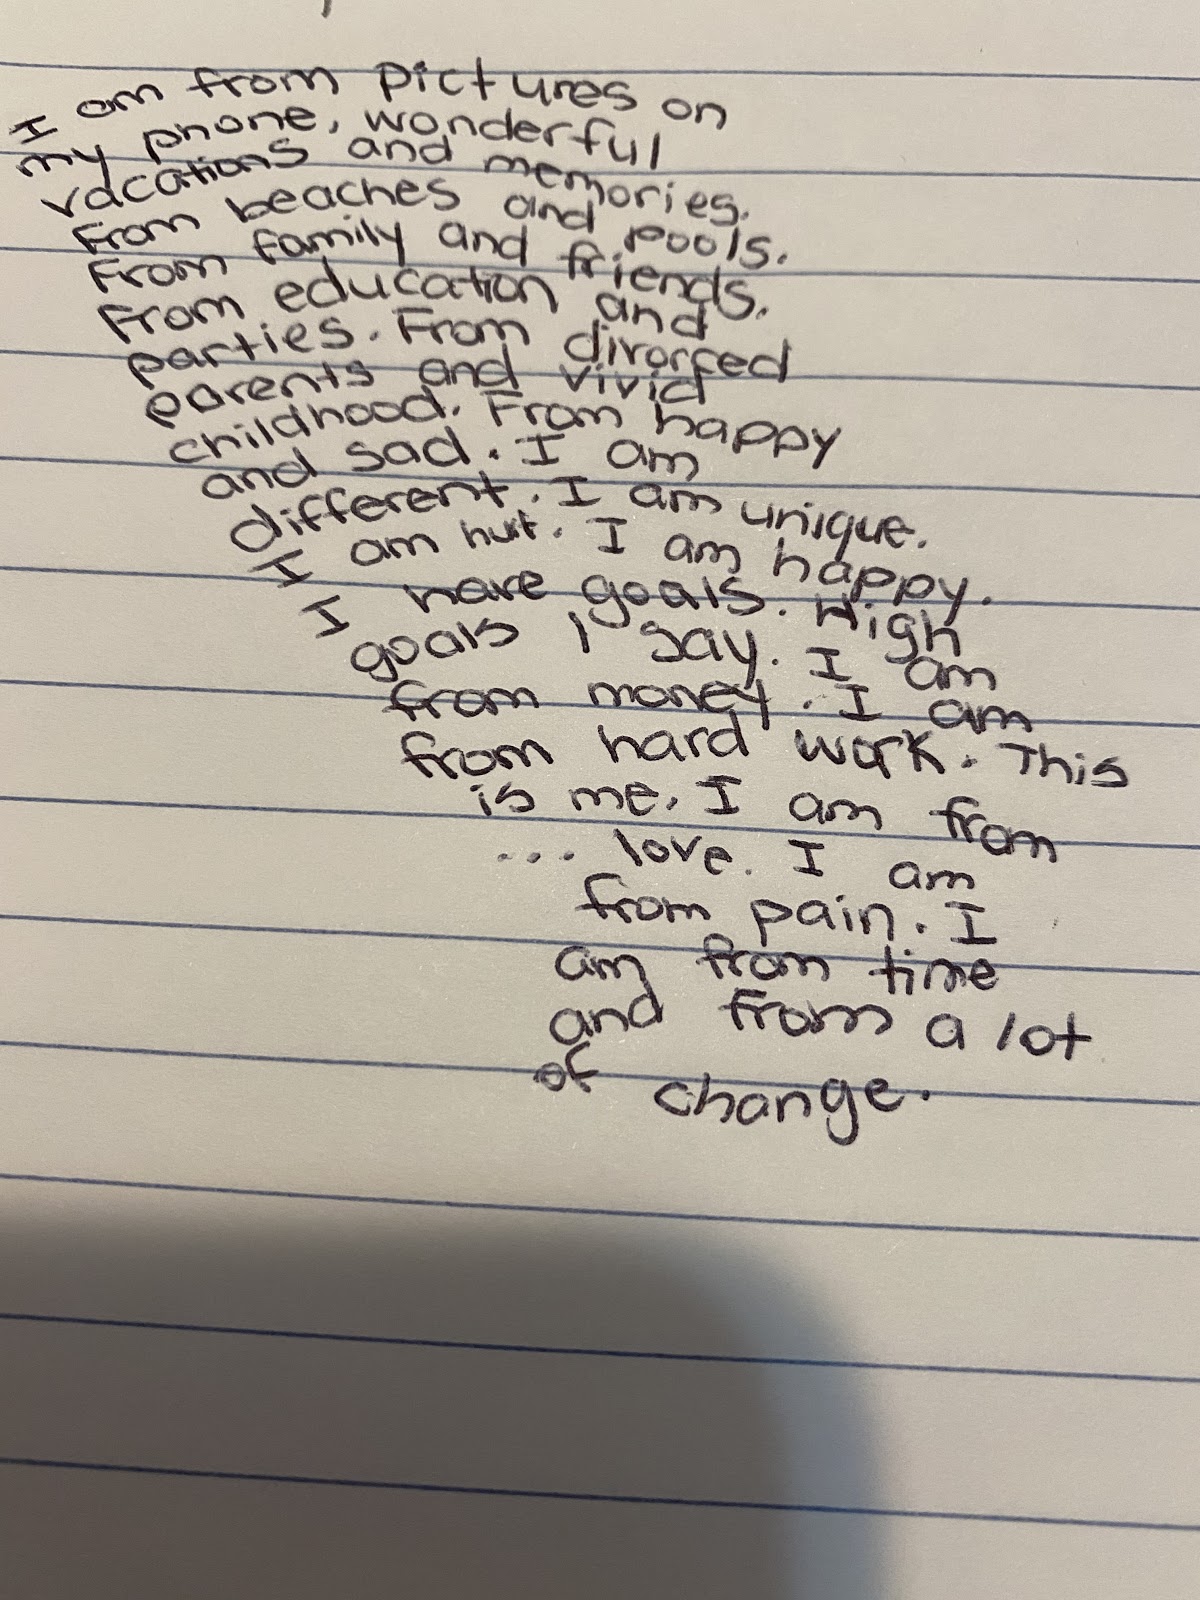 I am from pictures on
my phone, wonderful
vacations and memories.
From beaches and pools.
From family and friends.
From education and
parties. From divorced
parents and vivid
childhood. From happy
and sad. I am
different. I am unique.
I am hurt. I am happy.
I have goals. High
goals I say. I am
from money. I am
from hard work. This
is me. I am from
... love. I am
from pain. I
am from time
and from a lot
of change.